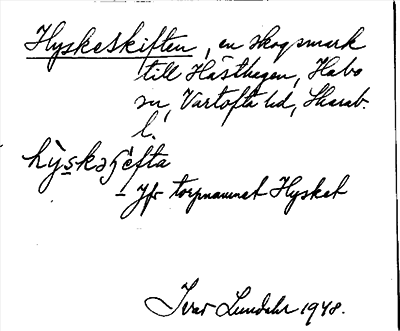 Hyskeskiften, en skogsmark
till Hästhagen, Habo
sn, Vartofta hd, Skarab.
l.
hỳskəʃèfta
– Jfr torpnamnet Hysket
Ivar Lundahl 1948.